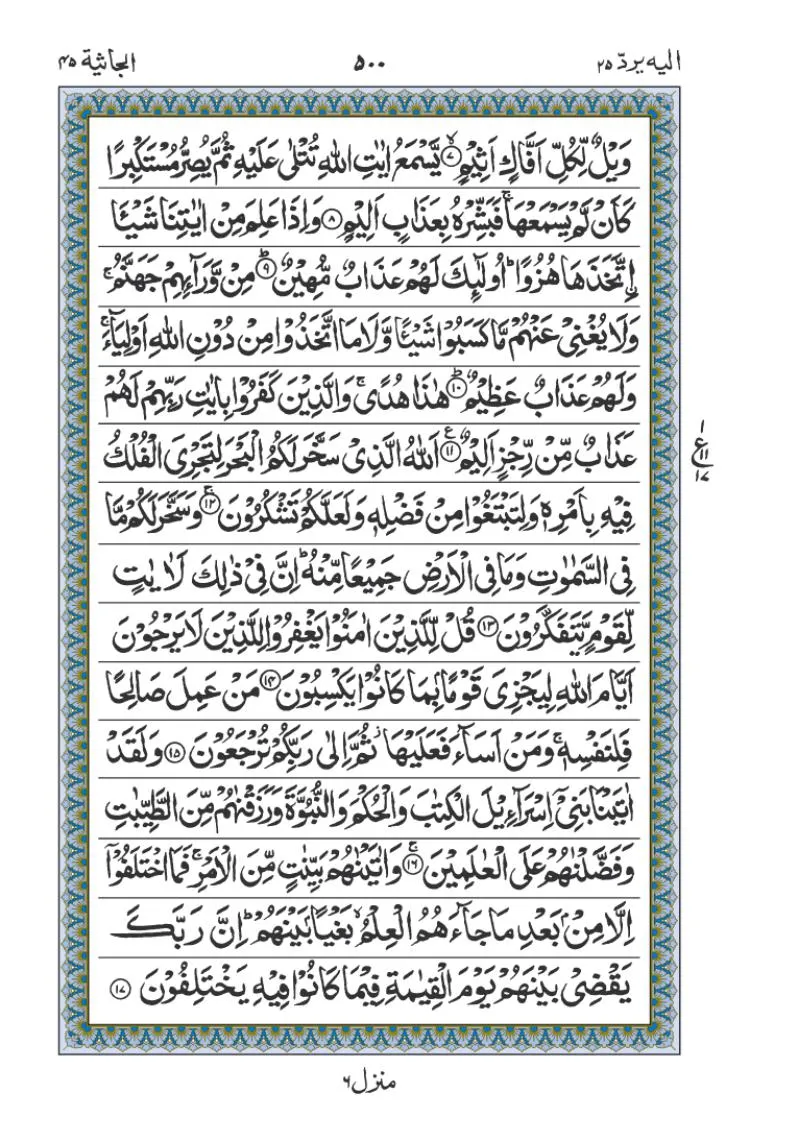 الیه یردّ ۲۵
۵۰۰
الجاثیة ۴۵
وَیْلٌ لِّكُلِّ اَفَّاكٍ اَثِیْمٍ ۙ﴿۷﴾ یَّسْمَعُ اٰیٰتِ اللّٰهِ تُتْلٰی عَلَیْهِ ثُمَّ یُصِرُّ مُسْتَكْبِرًا
كَاَنْ لَّمْ یَسْمَعْهَا ۚ فَبَشِّرْهُ بِعَذَابٍ اَلِیْمٍ ﴿۸﴾ وَاِذَا عَلِمَ مِنْ اٰیٰتِنَا شَیْـَٔا
اِتَّخَذَهَا هُزُوًا ؕ اُولٰٓئِكَ لَهُمْ عَذَابٌ مُّهِیْنٌ ؕ﴿۹﴾ مِنْ وَّرَآئِهِمْ جَهَنَّمُ ۚ
وَلَا یُغْنِیْ عَنْهُمْ مَّا كَسَبُوْا شَیْـًٔا وَّلَا مَا اتَّخَذُوْا مِنْ دُوْنِ اللّٰهِ اَوْلِیَآءَ ۚ
وَلَهُمْ عَذَابٌ عَظِیْمٌ ؕ﴿۱۰﴾ هٰذَا هُدًی ۚ وَالَّذِیْنَ كَفَرُوْا بِاٰیٰتِ رَبِّهِمْ لَهُمْ
عَذَابٌ مِّنْ رِّجْزٍ اَلِیْمٌ ﴿۱۱﴾ ع اَللّٰهُ الَّذِیْ سَخَّرَ لَكُمُ الْبَحْرَ لِتَجْرِیَ الْفُلْكُ
۱
ع ۱۱
۱۷
فِیْهِ بِاَمْرِهٖ وَلِتَبْتَغُوْا مِنْ فَضْلِهٖ وَلَعَلَّكُمْ تَشْكُرُوْنَ ۚ﴿۱۲﴾ وَسَخَّرَ لَكُمْ مَّا
فِی السَّمٰوٰتِ وَمَا فِی الْاَرْضِ جَمِیْعًا مِّنْهُ ؕ اِنَّ فِیْ ذٰلِكَ لَاٰیٰتٍ
لِّقَوْمٍ یَّتَفَكَّرُوْنَ ﴿۱۳﴾ قُلْ لِّلَّذِیْنَ اٰمَنُوْا یَغْفِرُوْا لِلَّذِیْنَ لَا یَرْجُوْنَ
اَیَّامَ اللّٰهِ لِیَجْزِیَ قَوْمًۢا بِمَا كَانُوْا یَكْسِبُوْنَ ﴿۱۴﴾ مَنْ عَمِلَ صَالِحًا
فَلِنَفْسِهٖ ۚ وَمَنْ اَسَآءَ فَعَلَیْهَا ؗ ثُمَّ اِلٰی رَبِّكُمْ تُرْجَعُوْنَ ﴿۱۵﴾ وَلَقَدْ
اٰتَیْنَا بَنِیْۤ اِسْرَآءِیْلَ الْكِتٰبَ وَالْحُكْمَ وَالنُّبُوَّةَ وَرَزَقْنٰهُمْ مِّنَ الطَّیِّبٰتِ
وَفَضَّلْنٰهُمْ عَلَی الْعٰلَمِیْنَ ۚ﴿۱۶﴾ وَاٰتَیْنٰهُمْ بَیِّنٰتٍ مِّنَ الْاَمْرِ ۚ فَمَا اخْتَلَفُوْۤا
اِلَّا مِنْۢ بَعْدِ مَا جَآءَهُمُ الْعِلْمُ ۙ بَغْیًۢا بَیْنَهُمْ ؕ اِنَّ رَبَّكَ
یَقْضِیْ بَیْنَهُمْ یَوْمَ الْقِیٰمَةِ فِیْمَا كَانُوْا فِیْهِ یَخْتَلِفُوْنَ ﴿۱۷﴾
منزل ۶